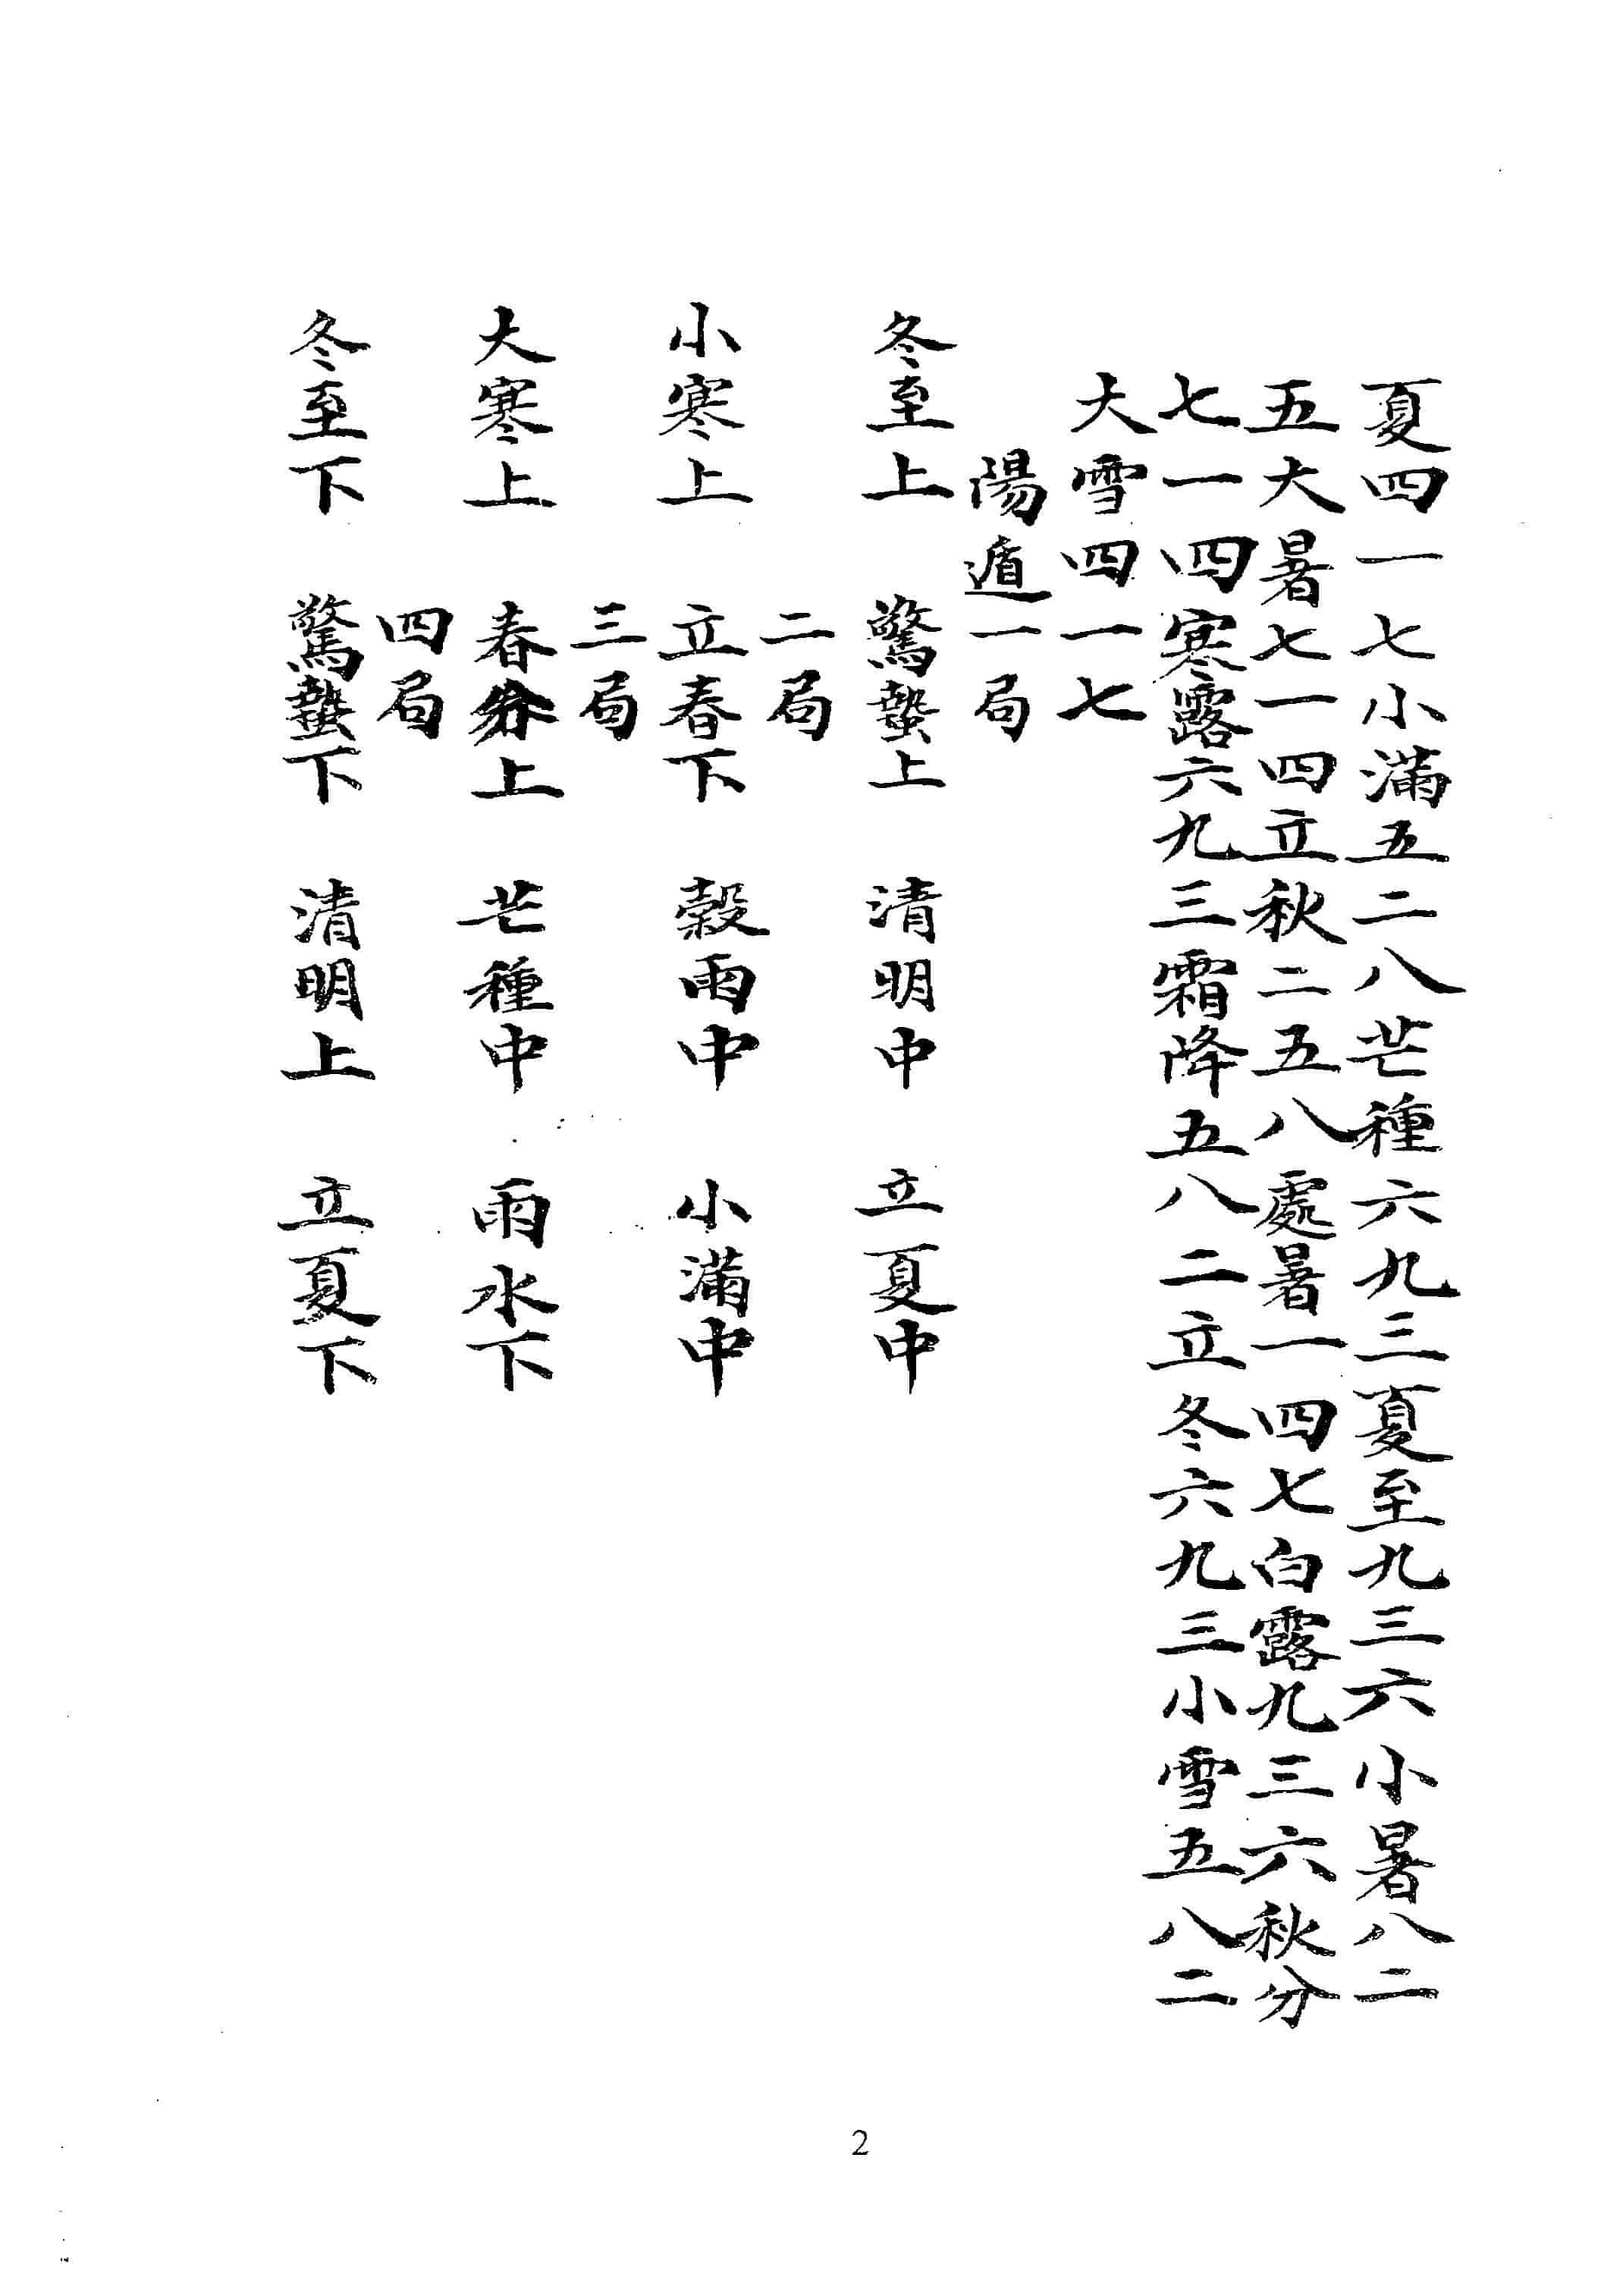 夏四一七小滿五二八芒種六九三夏至九三六小暑八二
五大暑七一四立秋二五八處暑一四七白露九三六秋分
七一四寒露六九三霜降五八二立冬六九三小雪五八二
大雪四一七
陽遁一局
冬至上 驚蟄上 清明中 立夏中
二局
小寒上 立春下 穀雨中 小滿中
三局
大寒上 春分上 芒種中 雨水下
四局
冬至下 驚蟄下 清明上 立夏下
2